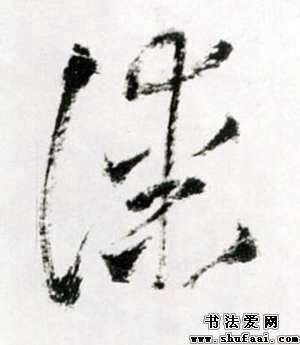 漆
书法爱网
www.shufaai.com